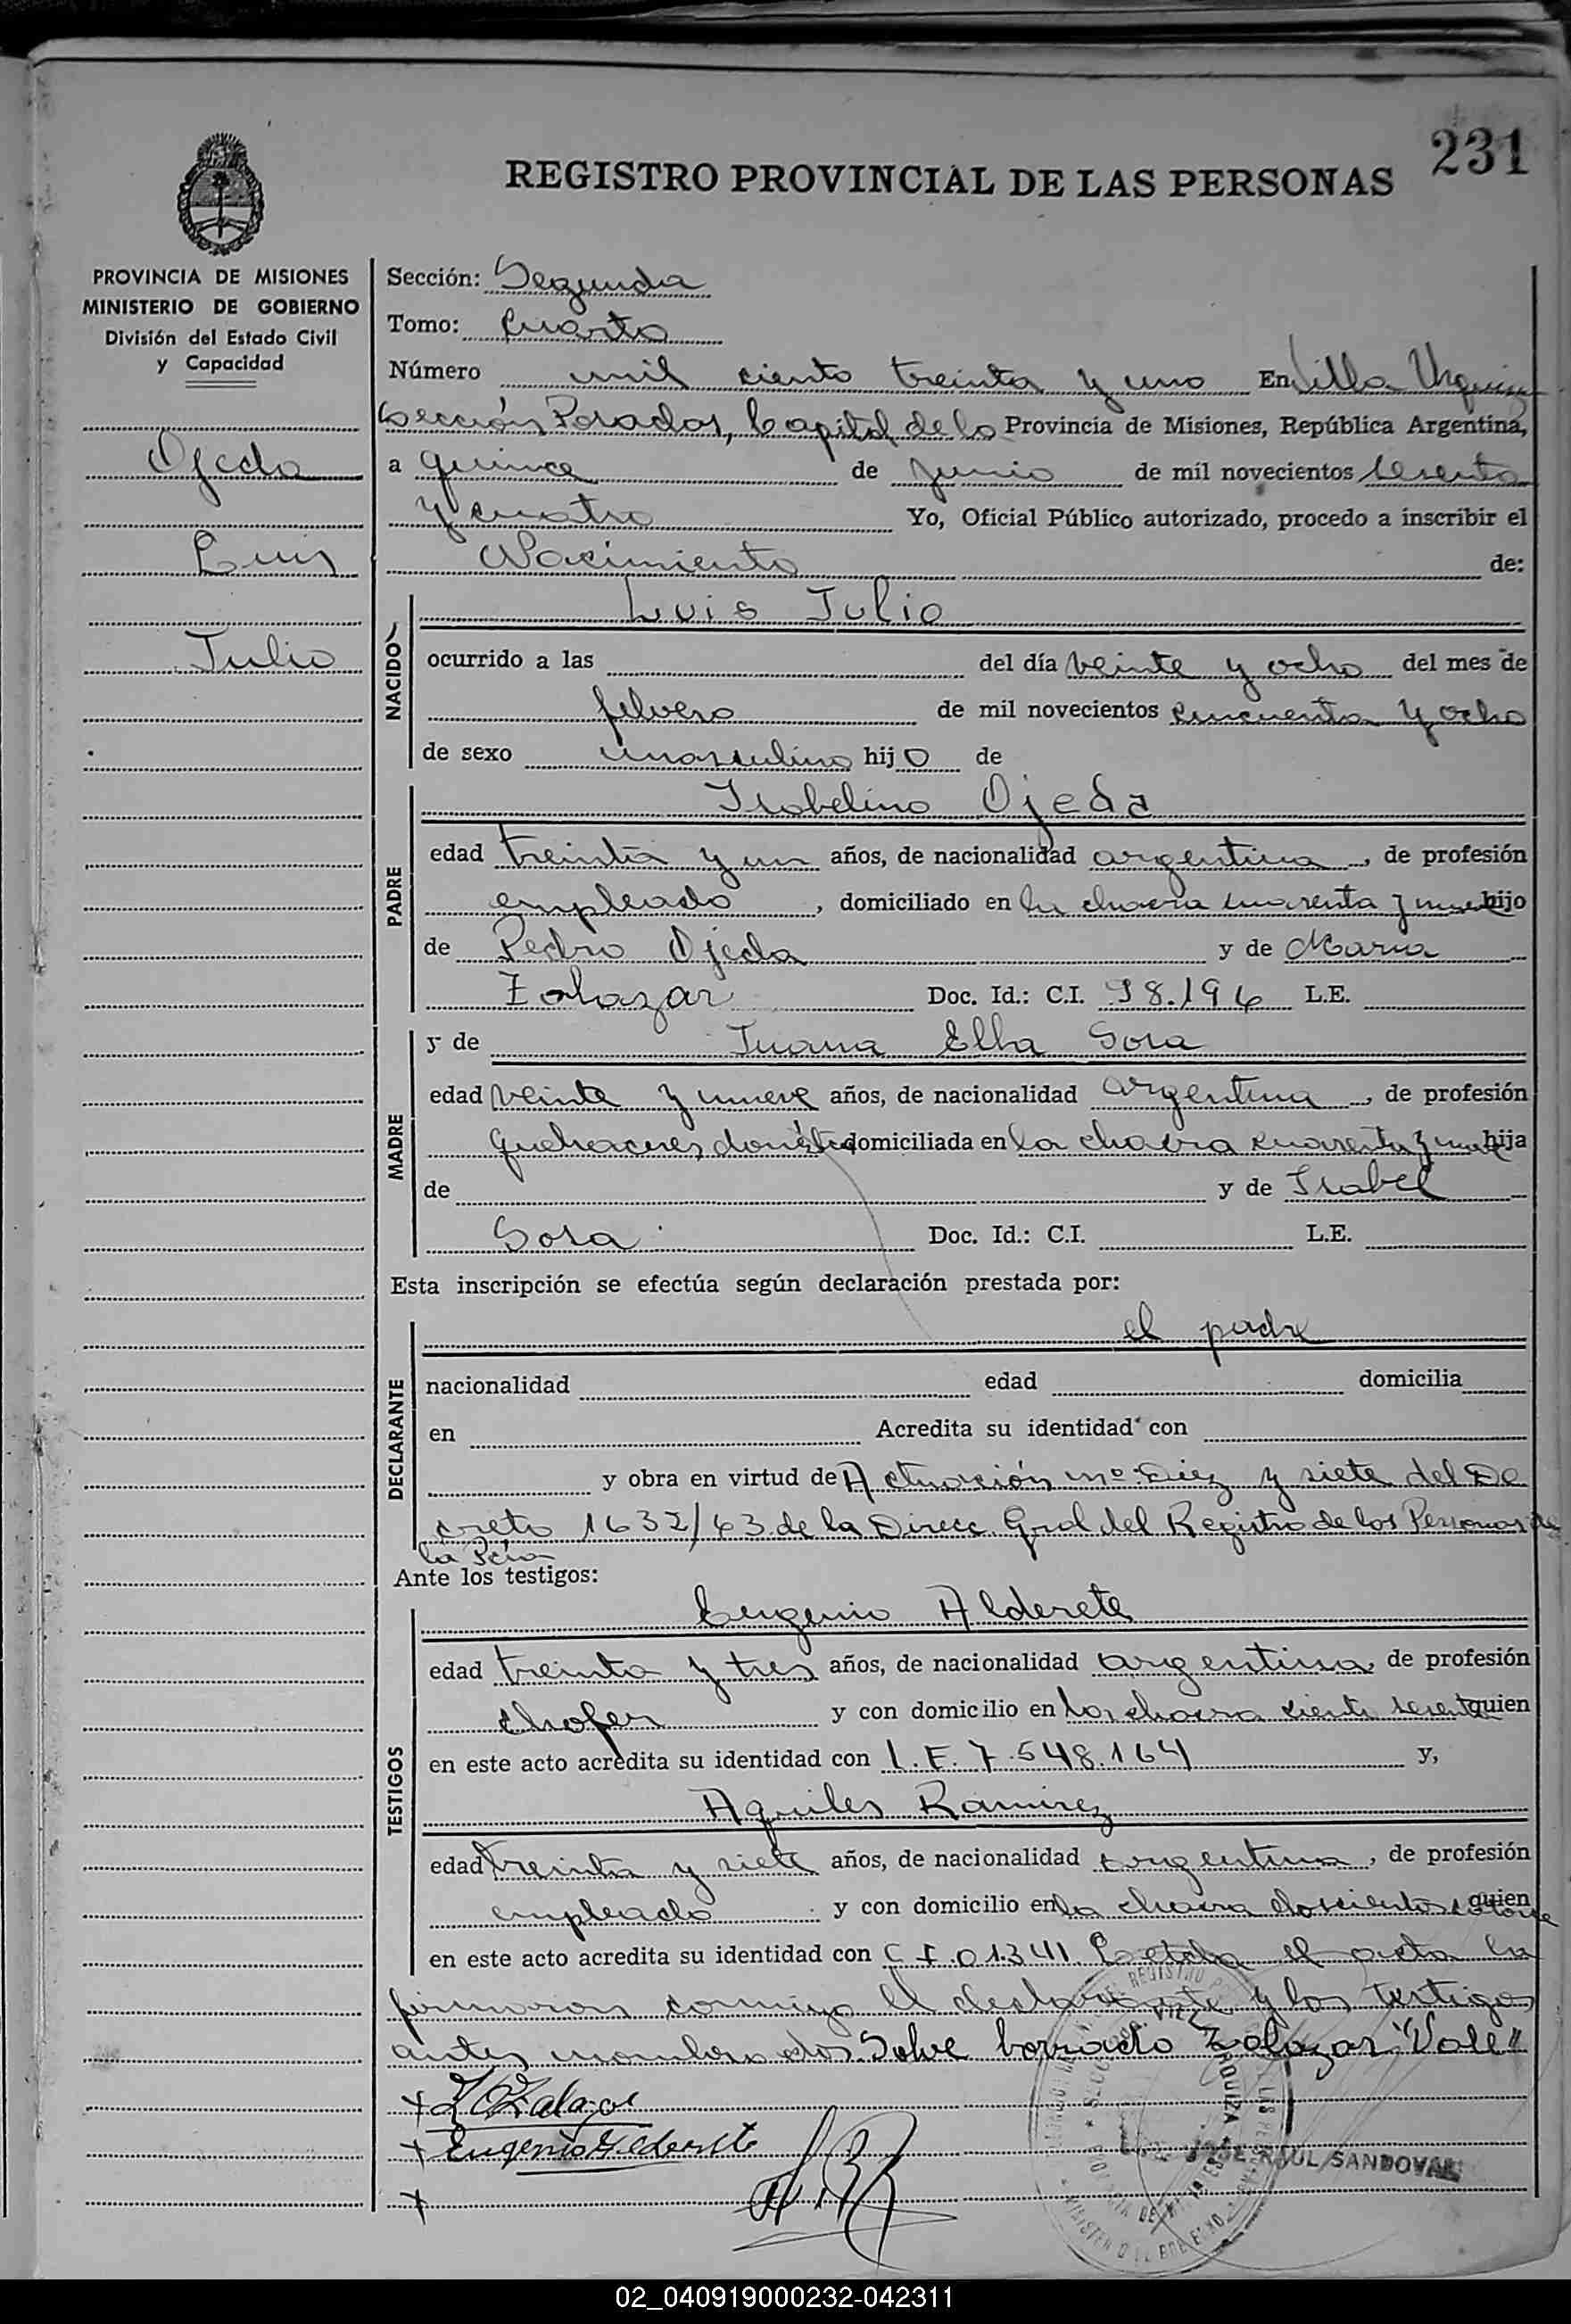 231
REGISTRO PROVINCIAL DE LAS PERSONAS
PROVINCIA DE MISIONES
MINISTERIO DE GOBIERNO
División del Estado Civil
y Capacidad
Ojeda
Luis
Julio
Sección: Segunda
Tomo: Cuarto
Número mil ciento treinta y uno En Villa Urquiza
Sección Posadas, Capital de la Provincia de Misiones, República Argentina,
a quince de junio de mil novecientos sesenta
y cuatro Yo, Oficial Público autorizado, procedo a inscribir el
Nacimiento de:
NACIDO
Luis Julio
ocurrido a las del día veinte y ocho del mes de
febrero de mil novecientos cincuenta y ocho
de sexo masculino hijo de
PADRE
Isabelino Ojeda
edad treinta y un años, de nacionalidad argentina, de profesión
empleado, domiciliado en la chacra cuarenta y nueve hijo
de Pedro Ojeda y de Maria
Zalazar Doc. Id.: C.I. 98.196 L.E.
MADRE
y de Juana Elba Sosa
edad veinte y nueve años, de nacionalidad argentina, de profesión
quehaceres domésticos domiciliada en la chacra cuarenta y nueve hija
de y de Isabel
Sosa Doc. Id.: C.I. L.E.
Esta inscripción se efectúa según declaración prestada por:
DECLARANTE
el padre
nacionalidad edad domicilia
en Acredita su identidad con
y obra en virtud de Actuación nº Diez y siete del De
creto 1632/63 de la Direcc. Gral del Registro de las Personas de
la Pcia
Ante los testigos:
TESTIGOS
Eugenio Alderete
edad treinta y tres años, de nacionalidad argentina, de profesión
chofer y con domicilio en la chacra ciento sesenta quien
en este acto acredita su identidad con L.E. 7.548.164 y,
Aquiles Ramirez
edad treinta y siete años, de nacionalidad argentina, de profesión
empleado y con domicilio en la chacra doscientos catorce quien
en este acto acredita su identidad con C.I. 01.341 el acta la
firmaron conmigo el declarante y los testigos
antes nombrados. Sobre borrado Zalazar "Vale"
+
+ Eugenio Alderete
+
JOSE RAUL SANDOVAL
02_040919000232-042311